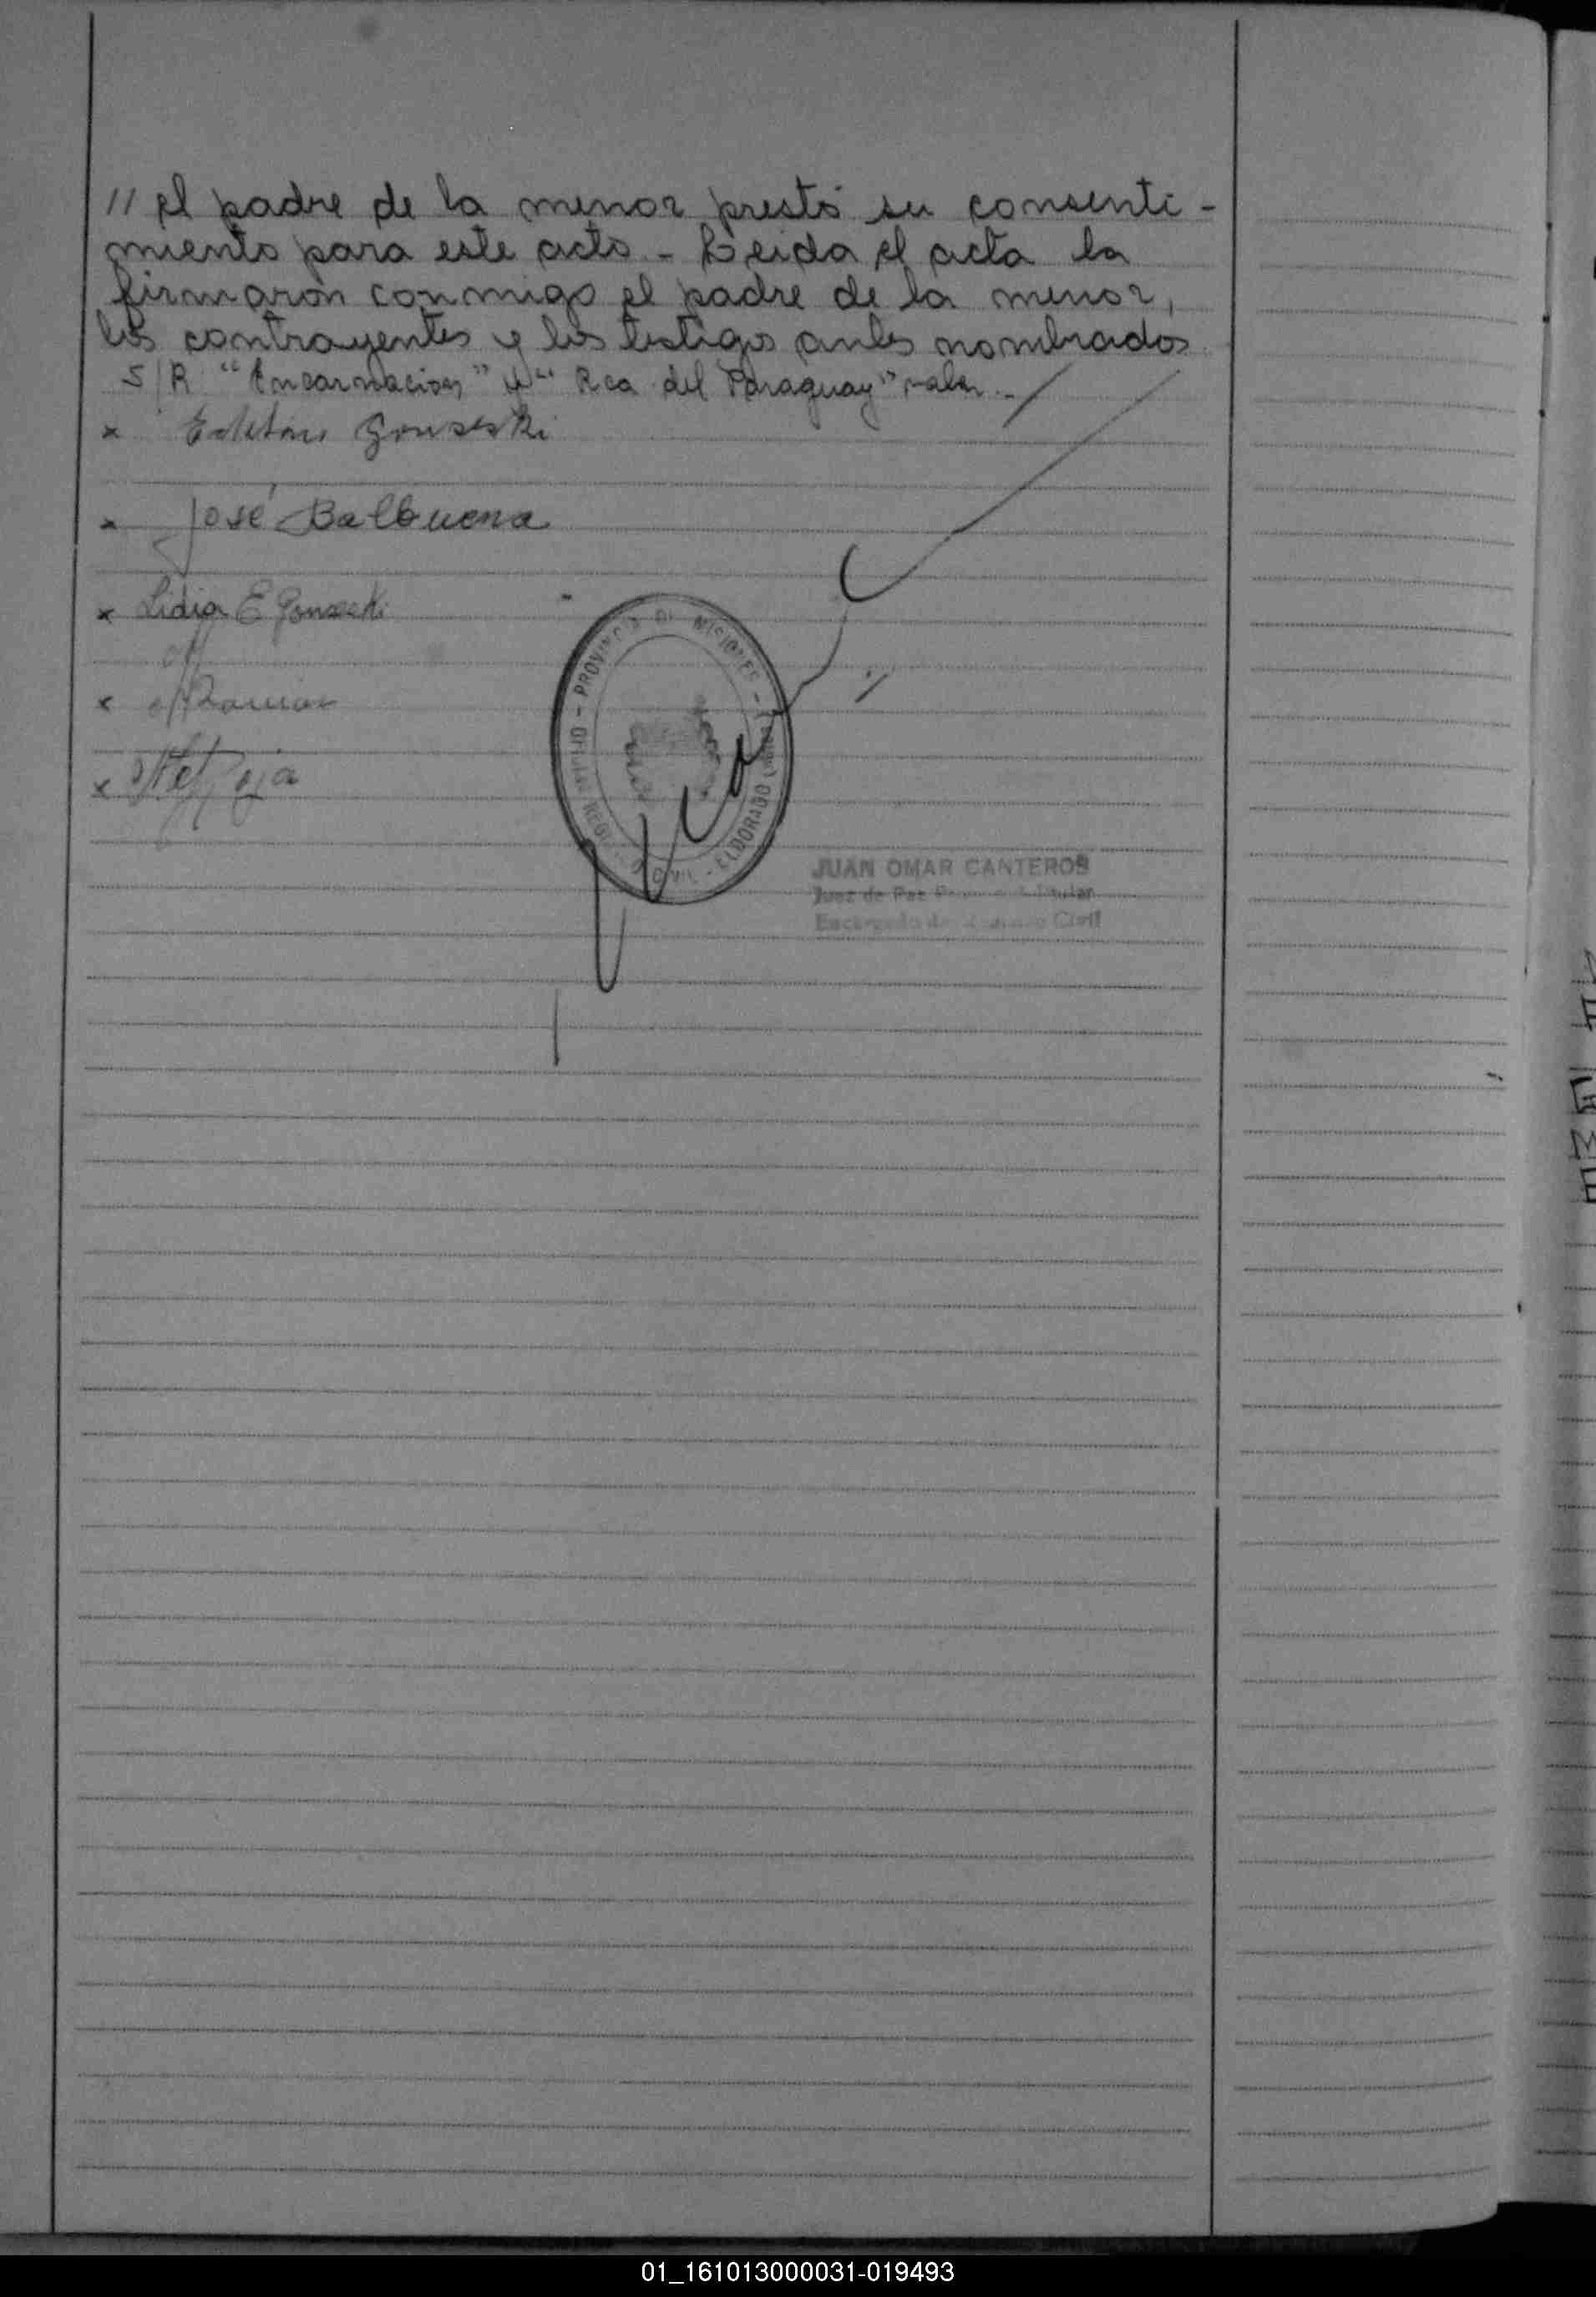 // el padre de la menor prestó su consenti-
miento para este acto - Leida el acta la
firmaron conmigo el padre de la menor,
los contrayentes y los testigos antes nombrados
S/R "Encarnacion" y "Rca del Paraguay" valen.-
x
x José Balbuena
x Lidia E
x
x
PROVINCIA DE MISIONES - ELDORADO
JUAN OMAR CANTEROS
Juez de Paz Titular
Encargado de Civil
01_161013000031-019493